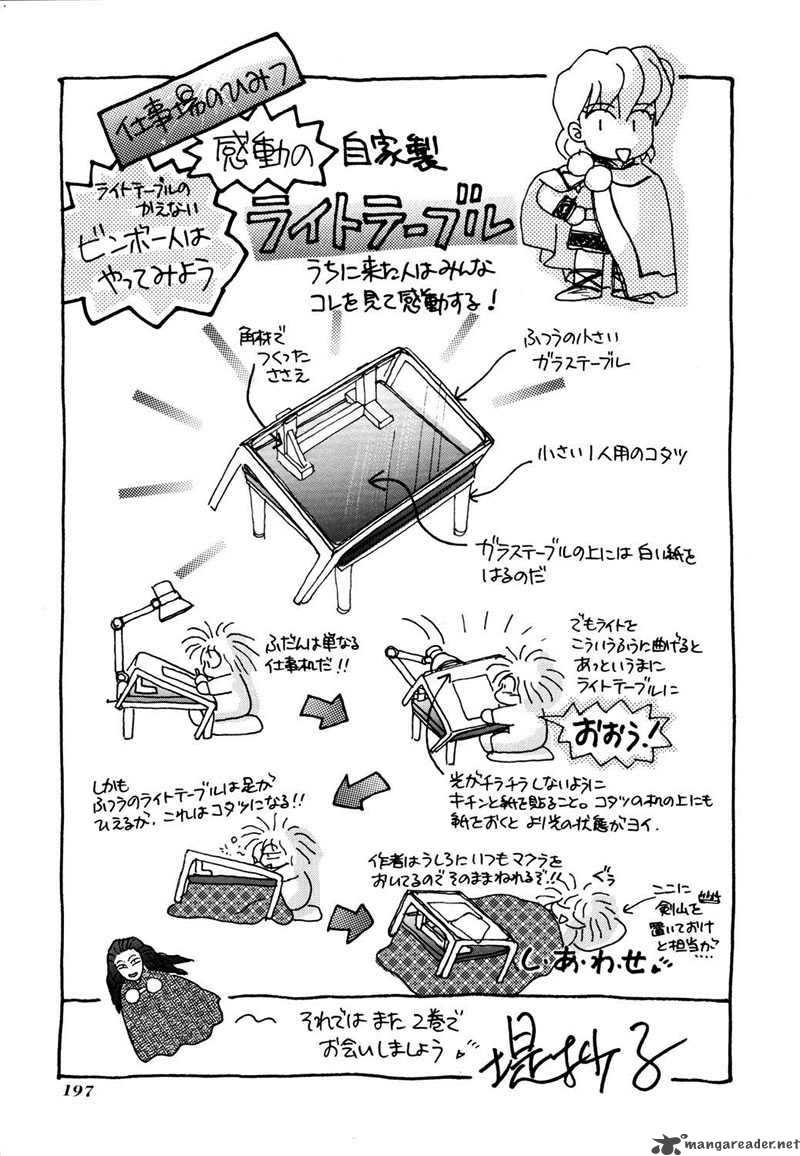 仕事場のひみつ
感動の
自家製
ライトテーブル
ライトテーブルの
かえない
ビンボー人は
やってみよう
うちに来た人はみんな
コレを見て感動する!
角材で
つくった
ささえ
ふつうの小さい
ガラステーブル
小さい1人用のコタツ
ガラステーブルの上には白い紙を
はるのだ
ふだんは単なる
仕事机だ!!
でもライトを
こういうふうに曲げると
あっというまに
ライトテーブルに
おおう!
光がチラチラしないように
キチンと紙を貼ること。コタツの机の上にも
紙をおくとより光の状態がヨイ.
しかも
ふつうのライトテーブルは足が
ひえるが、これはコタツになる!!
作者はうしろにいつもマクラを
おいてるのでそのままねれるぞ!!
ぐぅ
ここに
剣山を
置いておけ
と担当が
し・あ・わ・せ
それではまた2巻で
お会いしましょう
197
mangareader.net